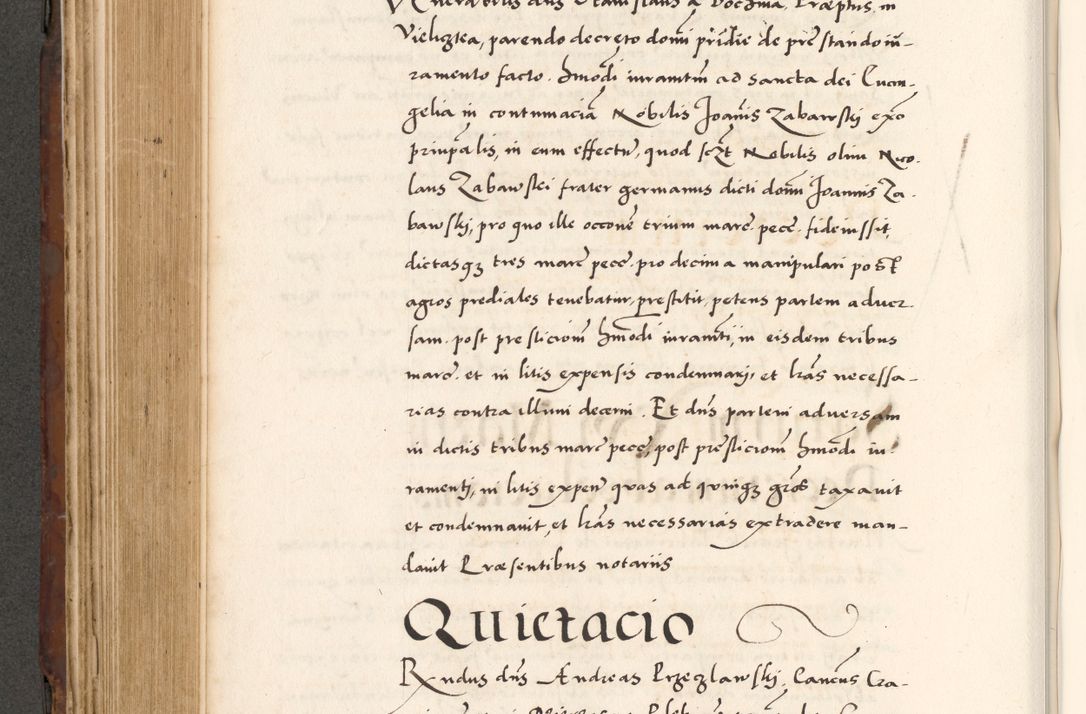 Venerabilis dns Stanislaus a Bochnia, Præptus, in
Vieliczka, parendo decreto domi pridie de prestando iu-
ramento facto. hmodi iuramtm ad sancta dei Euan-
gelia in contumaciã Nobilis Joanis Zabawski exo
principalis, in eum effectu, quod sczt Nobilis olim Nico-
laus Zabawski frater germanus dicti domi Joannis Za-
bawski, pro quo ille occone trium marc. pecc. fideiussit,
dictasqz tres marc pecc. pro decima manipulari post
agros prediales tenebatur, prestitit, petens partem aduer-
sam. post presticiom hmodi iuramti, in eisdem tribus
marc. et in litis expensis condemnari, et lras necessa-
rias contra illum decerni. Et dns partem adversam
in dictis tribus marc pecc, post presticiom hmodi iu-
ramenti, in litis expen quas ad quinqz gros taxavit
et condemnauit, et lras necessarias extradere man-
dauit Præsentibus notariis
Quietacio
Rndus dns Andreas Przeczlawski, Cancus Cra-